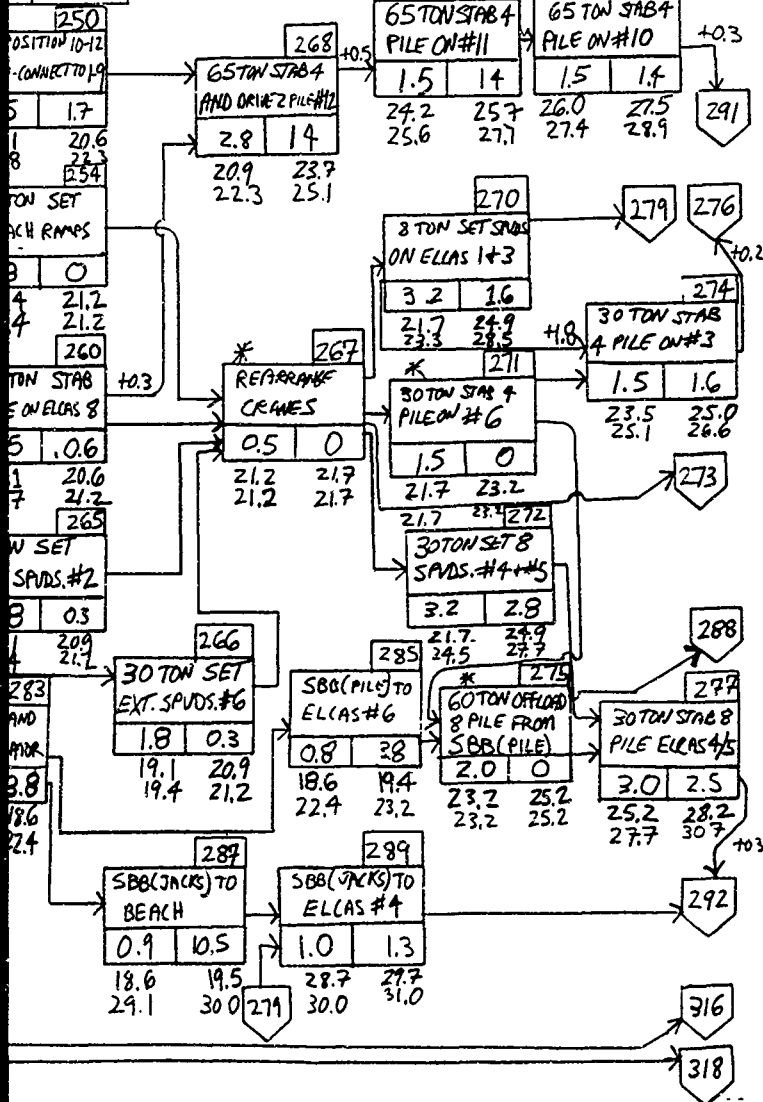 250
OSITION 10-12
-CONNECT TO 1-9
5 1.7
1 20.6
8 22.3
268
65 TON STAB 4
AND DRIVE 2 PILE #12
2.8 14
20.9 23.7
22.3 25.1
+0.5
65 TON STAB 4
PILE ON #11
1.5 14
24.2 25.7
25.6 27.1
65 TON STAB 4
PILE ON #10
1.5 1.4
26.0 27.5
27.4 28.9
+0.3
291
254
TON SET
ACH RAMPS
3 0
4 21.2
.4 21.2
270
8 TON SET SPUDS
ON ELCAS 1+3
3.2 1.6
21.7 24.9
23.3 28.5
279
276
+0.2
274
30 TON STAB
4 PILE ON #3
1.5 1.6
23.5 25.0
25.1 26.6
+1.8
260
TON STAB
E ON ELCAS 8
5 .0.6
.1 20.6
7 21.2
+0.3
* 267
REARRANGE
CRANES
0.5 0
21.2 21.7
21.2 21.7
* 271
30 TON STAB 4
PILE ON #6
1.5 0
21.7 23.2
21.7 23.2
273
265
W SET
SPUDS. #2
8 0.3
20.9
21.2
272
30 TON SET 8
SPUDS. #4+#5
3.2 2.8
21.7 24.9
24.5 27.7
266
30 TON SET
EXT. SPUDS. #6
1.8 0.3
19.1 20.9
19.4 21.2
285
SBB(PILE) TO
ELCAS #6
0.8 3.8
18.6 19.4
22.4 23.2
* 275
60 TON OFFLOAD
8 PILE FROM
SBB(PILE)
2.0 0
23.2 25.2
23.2 25.2
288
277
30 TON STAB 8
PILE ELCAS 4/5
3.0 2.5
25.2 28.2
27.7 30.7
+03
292
283
AND
3.8
18.6
22.4
287
SBB(JACKS) TO
BEACH
0.9 10.5
18.6 19.5
29.1 30.0
279
289
SBB(JACKS) TO
ELCAS #4
1.0 1.3
28.7 29.7
30.0 31.0
316
318